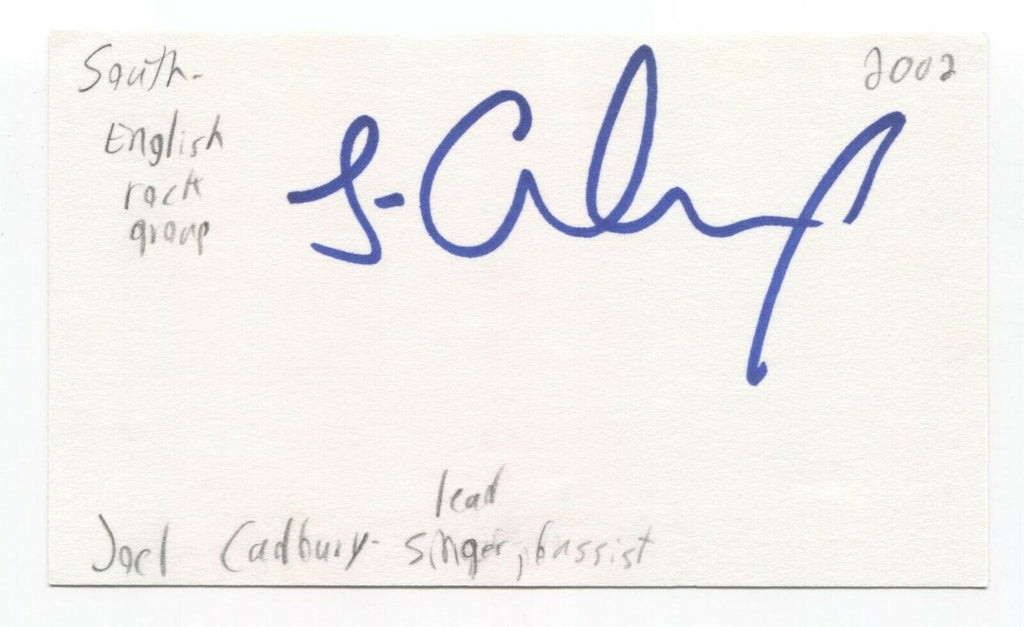 South-
2002
English
rock
group
J-Cadbury
lead
Joel Cadbury- singer, bassist